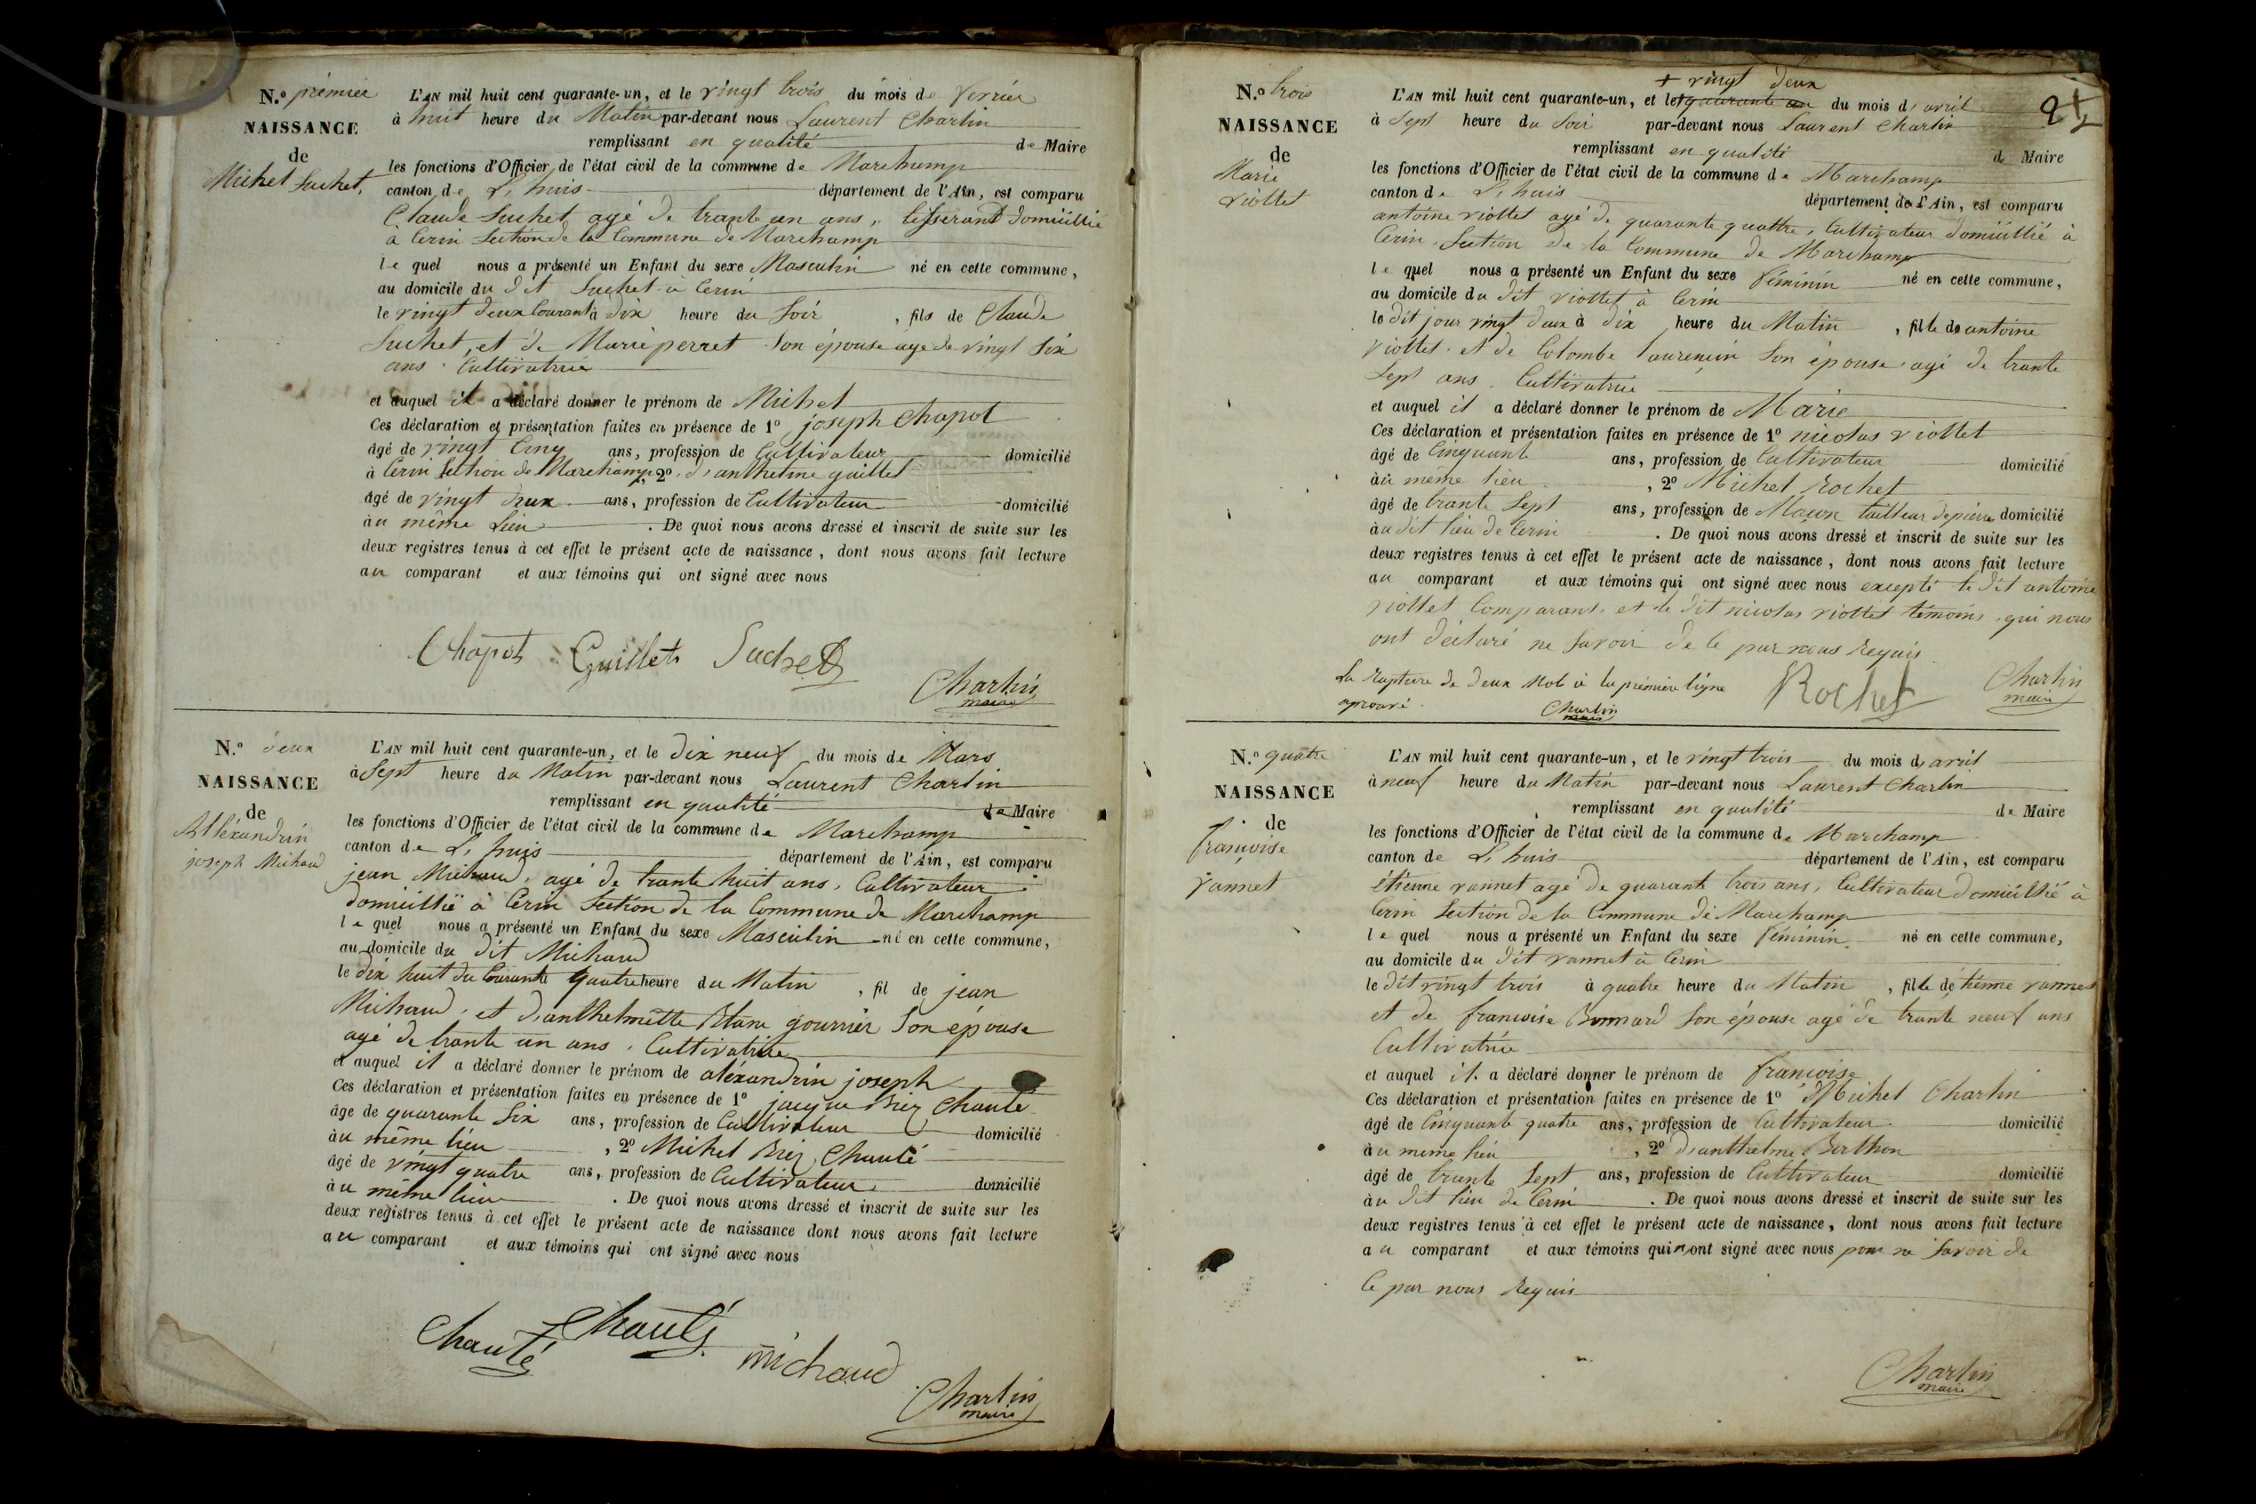 N.º prémier
NAISSANCE
de
Michel Suchet,
L'AN mil huit cent quarante-un, et le vingt trois du mois de fevrier
à huit heure du Matin par-devant nous Laurent Charlin
remplissant en qualité de Maire
les fonctions d'Officier de l'état civil de la commune de Marchamp
canton de L, huis département de l'Ain, est comparu
Claude Suchet, agé de trante un ans, tisserant domicillié
à Cerin Section de la Commune de Marchamp
le quel nous a présenté un Enfant du sexe Masculin né en cette commune,
au domicile du dit Suchet à Cerin
le vingt deux Courant à dix heure du Soir , fils de Claude
Suchet, et de Marie perret Son épouse age de vingt Six
ans. Cultivatrice
et auquel il a déclaré donner le prénom de Michel
Ces déclaration et présentation faites en présence de 1º joseph Chapot
âgé de vingt Cinq ans, profession de Cultivateur domicilié
à Cerin Section de Marchamp, 2º d, anthelme guillet
âgé de vingt deux ans, profession de Cultivateur domicilié
à au même Lieu . De quoi nous avons dressé et inscrit de suite sur les
deux registres tenus à cet effet le présent acte de naissance, dont nous avons fait lecture
au comparant et aux témoins qui ont signé avec nous
Chapot Guillet Suchet
Charlin
maire
N.º deux
NAISSANCE
de
Alléxandrin
joseph Michaud
L'AN mil huit cent quarante-un, et le dix neuf du mois de Mars
à Sept heure du Matin par-devant nous Laurent Charlin
remplissant en qualité de Maire
les fonctions d'Officier de l'état civil de la commune de Marchamp
canton de L, huis département de l'Ain, est comparu
jean Michaud, agé de trante huit ans, Cultivateur
domicillié à Cerin Section de la Commune de Marchamp
le quel nous a présenté un Enfant du sexe Masculin né en cette commune,
au domicile du dit Michaud
le dix huit du Courant à quatre heure du Matin , fil de jean
Michaud, et d, anthelmette Blanc gourrier Son épouse
agé de trante un ans, Cultivatrice
et auquel il a déclaré donner le prénom de aléxandrin joseph
Ces déclaration et présentation faites en présence de 1º jacque Briez Chanté
âgé de quarante Six ans, profession de Cultivateur domicilié
à au même lieu , 2º Michel Briez, Chanté
âgé de vingt quatre ans, profession de Cultivateur domicilié
à au même lieu . De quoi nous avons dressé et inscrit de suite sur les
deux registres tenus à cet effet le présent acte de naissance dont nous avons fait lecture
au comparant et aux témoins qui ont signé avec nous
Chanté Chanté michaud
Charlin
maire
21
N.º trois
NAISSANCE
de
Marie
viollet
+ vingt deux
L'AN mil huit cent quarante-un, et le + quarante un du mois d, avril
à Sept heure du Soir par-devant nous Laurent Charlin
remplissant en qualité de Maire
les fonctions d'Officier de l'état civil de la commune de Marchamp
canton de L, huis département de l'Ain, est comparu
antoine viollet agé de quarante quattre, Cultivateur domicillié à
Cerin, Section de la Commune de Marchamp
le quel nous a présenté un Enfant du sexe féminin né en cette commune,
au domicile du dit viollet à Cerin
le dit jour vingt deux à dix heure du Matin , fille de antoine
viollet. et de Colombe Laurencin Son épouse, agé de trante
Sept ans. Cultivatrice
et auquel il a déclaré donner le prénom de Marie
Ces déclaration et présentation faites en présence de 1º nicolas viollet
âgé de Cinquante ans, profession de Cultivateur domicilié
à au même lieu , 2º Michel Rochet
âgé de trante Sept ans, profession de Maçon tailleur de pierre domicilié
à au dit lieu de Cerin . De quoi nous avons dressé et inscrit de suite sur les
deux registres tenus à cet effet le présent acte de naissance, dont nous avons fait lecture
au comparant et aux témoins qui ont signé avec nous excepté le dit antoine
viollet Comparant, et le dit nicolas viollet témoins, qui nous
ont déclaré ne Savoir de le par nous Requis
La Rapture de deux Mot à la première ligne
aprouvé.
Charlin
maire
Rochet
Charlin
maire
N.º quatre
NAISSANCE
de
françoise
vannet
L'AN mil huit cent quarante-un, et le vingt trois du mois d, avril
à neuf heure du Matin par-devant nous Laurent Charlin
remplissant en qualité de Maire
les fonctions d'Officier de l'état civil de la commune de Marchamp
canton de L, huis département de l'Ain, est comparu
étienne vannet agé de quarante trois ans, Cultivateur domicillié à
Cerin Section de la Commune de Marchamp
le quel nous a présenté un Enfant du sexe féminin né en cette commune,
au domicile du dit vannet à Cerin
le dit vingt trois à quatre heure du Matin , fille de étienne vannet
et de francoise Bonnard Son épouse agé de trante neuf ans
Cultivatrice
et auquel il a déclaré donner le prénom de francoise
Ces déclaration et présentation faites en présence de 1º Michel Charlin
âgé de Cinquante quatre ans, profession de Cultivateur domicilié
à au meme lieu , 2º d, anthelme Berthon
âgé de trante Sept ans, profession de Cultivateur domicilié
à au dit lieu de Cerin . De quoi nous avons dressé et inscrit de suite sur les
deux registres tenus à cet effet le présent acte de naissance, dont nous avons fait lecture
au comparant et aux témoins qui n, ont signé avec nous pour ne Savoir de
le par nous Requis
Charlin
maire